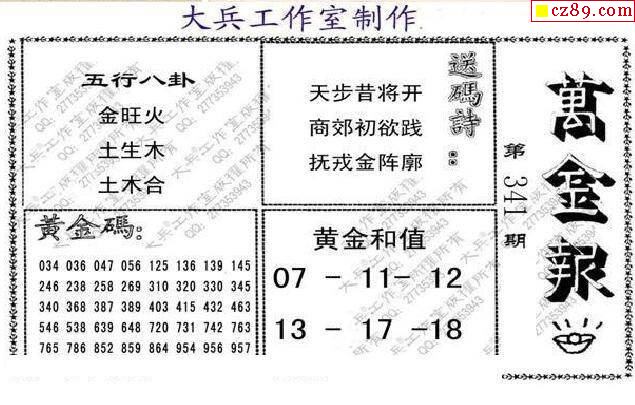 大兵工作室制作
cz89.com
五行八卦
金旺火
土生木
土木合
送碼詩：
天步昔将开
商郊初欲践
抚戎金阵廓
萬金報
第341期
黃金碼:
034 036 047 056 125 136 139 145
246 238 258 269 310 320 330 345
340 368 387 389 403 415 432 463
546 538 639 648 720 731 742 763
765 786 852 859 864 954 956 957
黄金和值
07 - 11- 12
13 - 17 -18
大兵工作室版權所有
QQ: 277353943